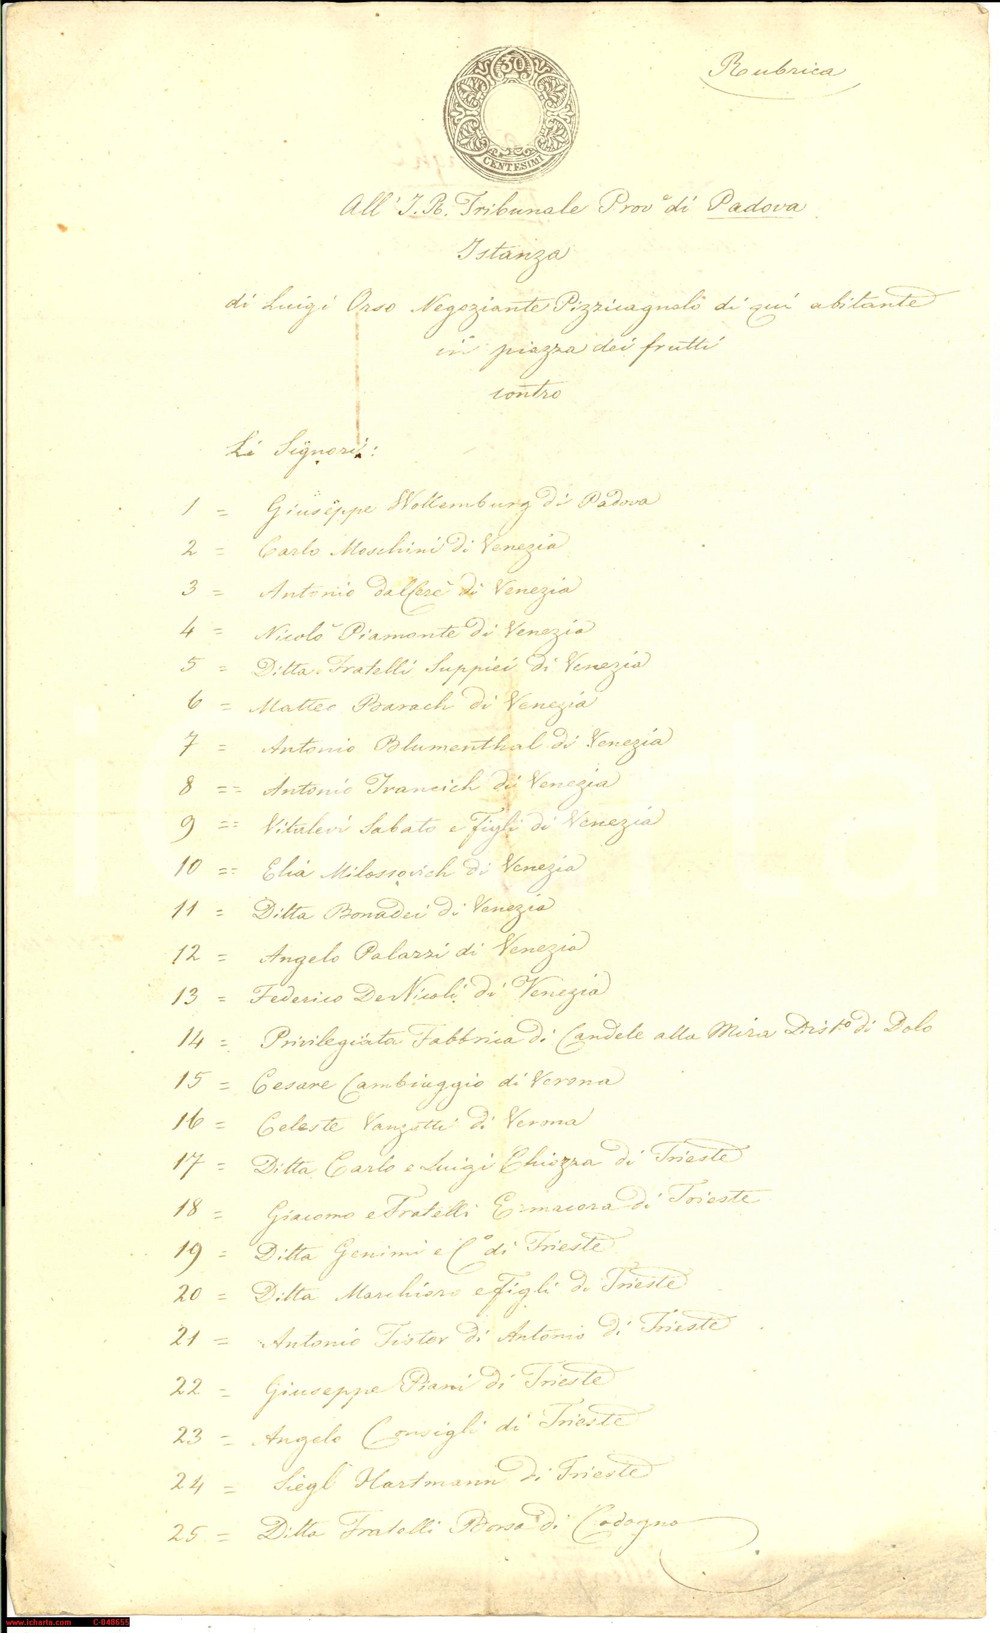 Rubrica
30
CENTESIMI
All' I. R. Tribunale Prov.e di Padova
Istanza
di Luigi Orso Negoziante Pizzicagnolo di qui abitante
in piazza dei frutti
contro
Li Signori:
1 = Giuseppe Wollemburg di Padova
2 = Carlo Moschini di Venezia
3 = Antonio dalCerè di Venezia
4 = Nicolò Piamonte di Venezia
5 = Ditta Fratelli Suppiei di Venezia
6 = Matteo Barach di Venezia
7 = Antonio Blumenthal di Venezia
8 = Antonio Ivancich di Venezia
9 = Vitalevi Sabato e Figli di Venezia
10 = Elia Milossovich di Venezia
11 = Ditta Bonadei di Venezia
12 = Angelo Palazzi di Venezia
13 = Federico DeNicoli di Venezia
14 = Privilegiata Fabbrica di Candele alla Mira Dist.o di Dolo
15 = Cesare Cambiaggio di Verona
16 = Celeste Vanzetti di Verona
17 = Ditta Carlo e Luigi Chiozza di Trieste
18 = Giacomo e Fratelli Ermacora di Trieste
19 = Ditta Genimi e C.o di Trieste
20 = Ditta Marchioro e Figli di Trieste
21 = Antonio Tistor di Antonio di Trieste
22 = Giuseppe Piani di Trieste
23 = Angelo Consigli di Trieste
24 = Siegl Hartmann di Trieste
25 = Ditta Fratelli Borsa di Codogno
www.icharta.com C-048655